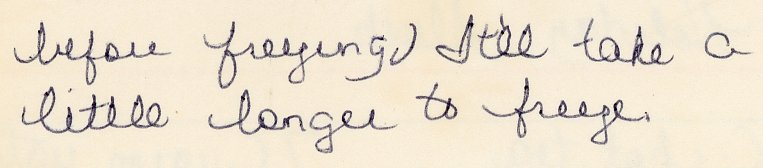 before freezing,) It'll take a
little longer to freeze.